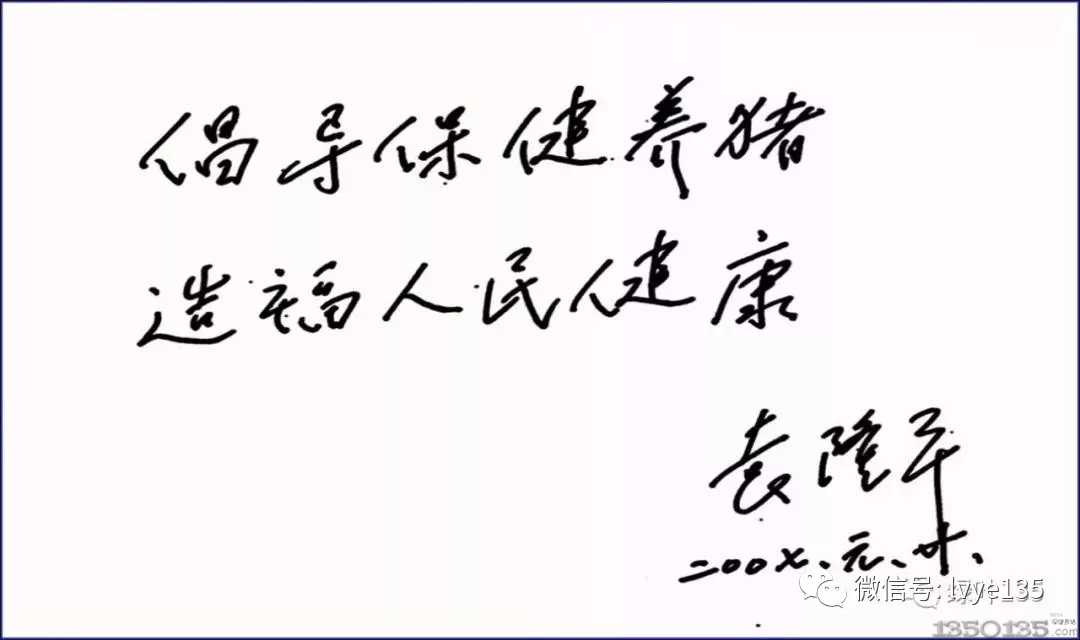 倡导保健养猪
造福人民健康
袁隆平
二00七、元、廿、
微信号: lvye135
1350135
.com